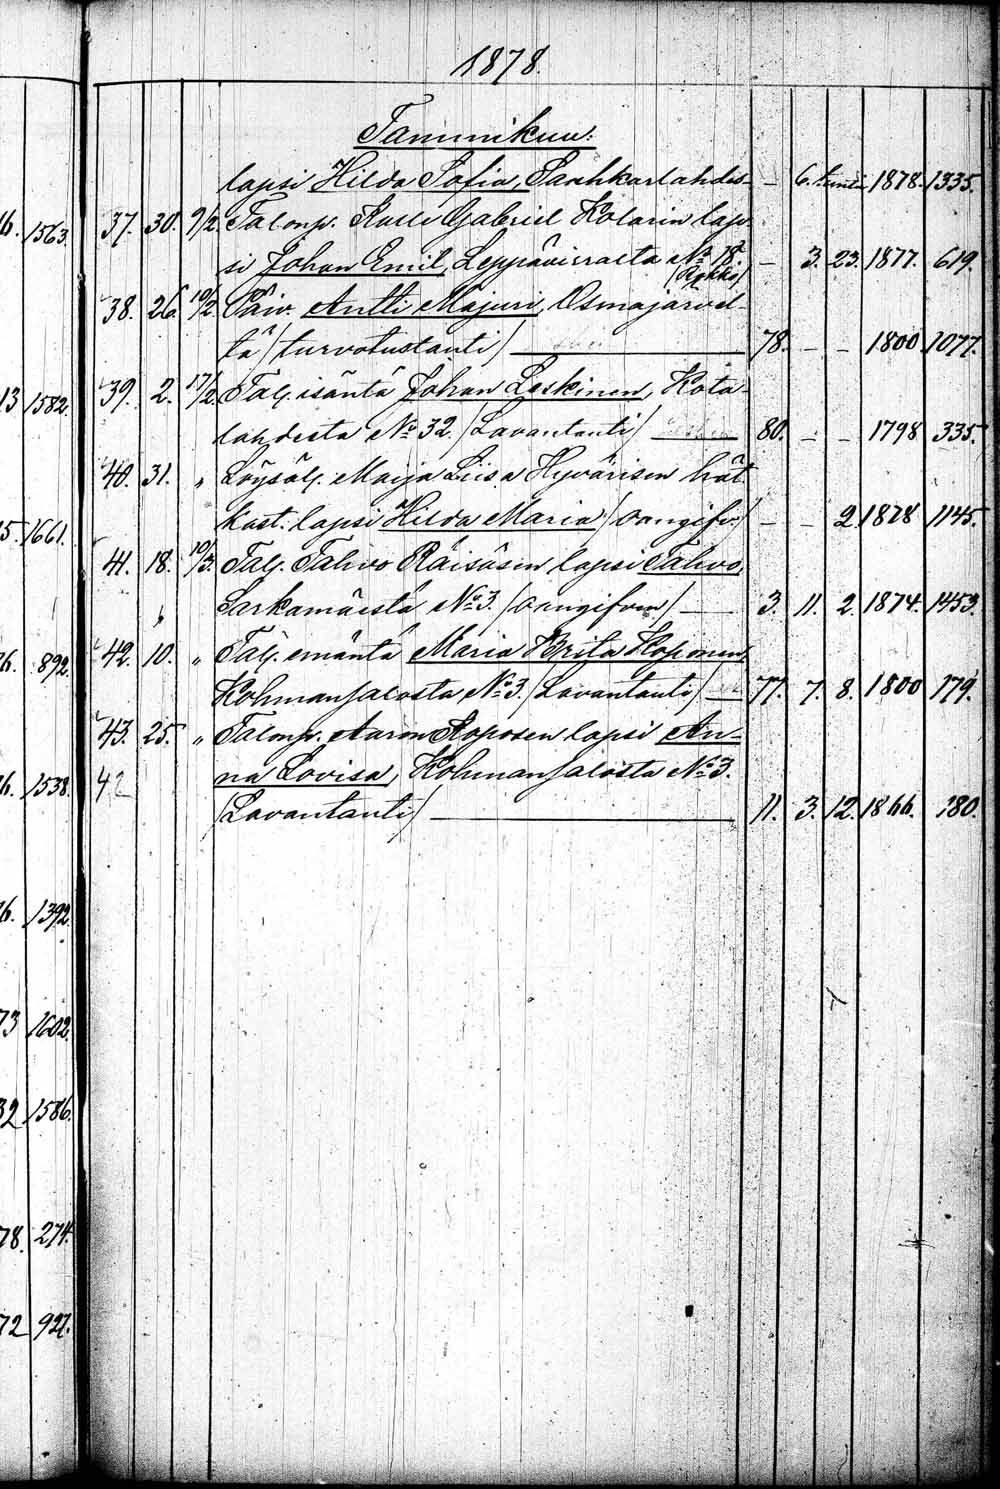 1878.
Tammikuu:
lapsi Hilda Sofia, Sarkkarlahdes- — 6. tuntia 1878. 1335.
37. 30. 9/2. Talonp. Kalle Gabriel Kolarin lap-
si Johan Emil, Leppävirralta № 18. — 3. 23. 1877. 619.
(Rokko)
38. 26. 10/2. Päiv. Antti Majuri, Osmajärvel-
tä /turvotustauti/ — 78. — — 1800 1077.
39. 2. 17/2. Tal. isäntä Johan Leskinen, Kota-
lahdesta № 32. /Lavantauti/ 80. — — 1798 335.
40. 31. „ Löysäl. Maija Liisa Hyvärisen hät.
kast. lapsi Hilda Maria /oangifv./ — — 2 1878 1145.
41. 18. 10/3. Tal. Tahvo Räisäsen lapsi Tahvo,
„ Sarkamäestä № 3. /oangifven/ — 3. 11. 2. 1874. 1453.
42. 10. „ Tal. emäntä Maria Brita Koponen,
Kohmansalosta № 3. /Lavantauti/ 77. 7. 8. 1800 179.
43. 25. „ Talonp. Aaron Koposen lapsi An-
42 na Lovisa, Kohmansalosta № 3.
/Lavantauti/ — 11. 3. 12. 1866. 180.
6. 1563.
13 1582.
5. 1661.
76. 892.
6. 1538.
6. 1392.
73 1602.
32 1586.
78. 274.
72 927.